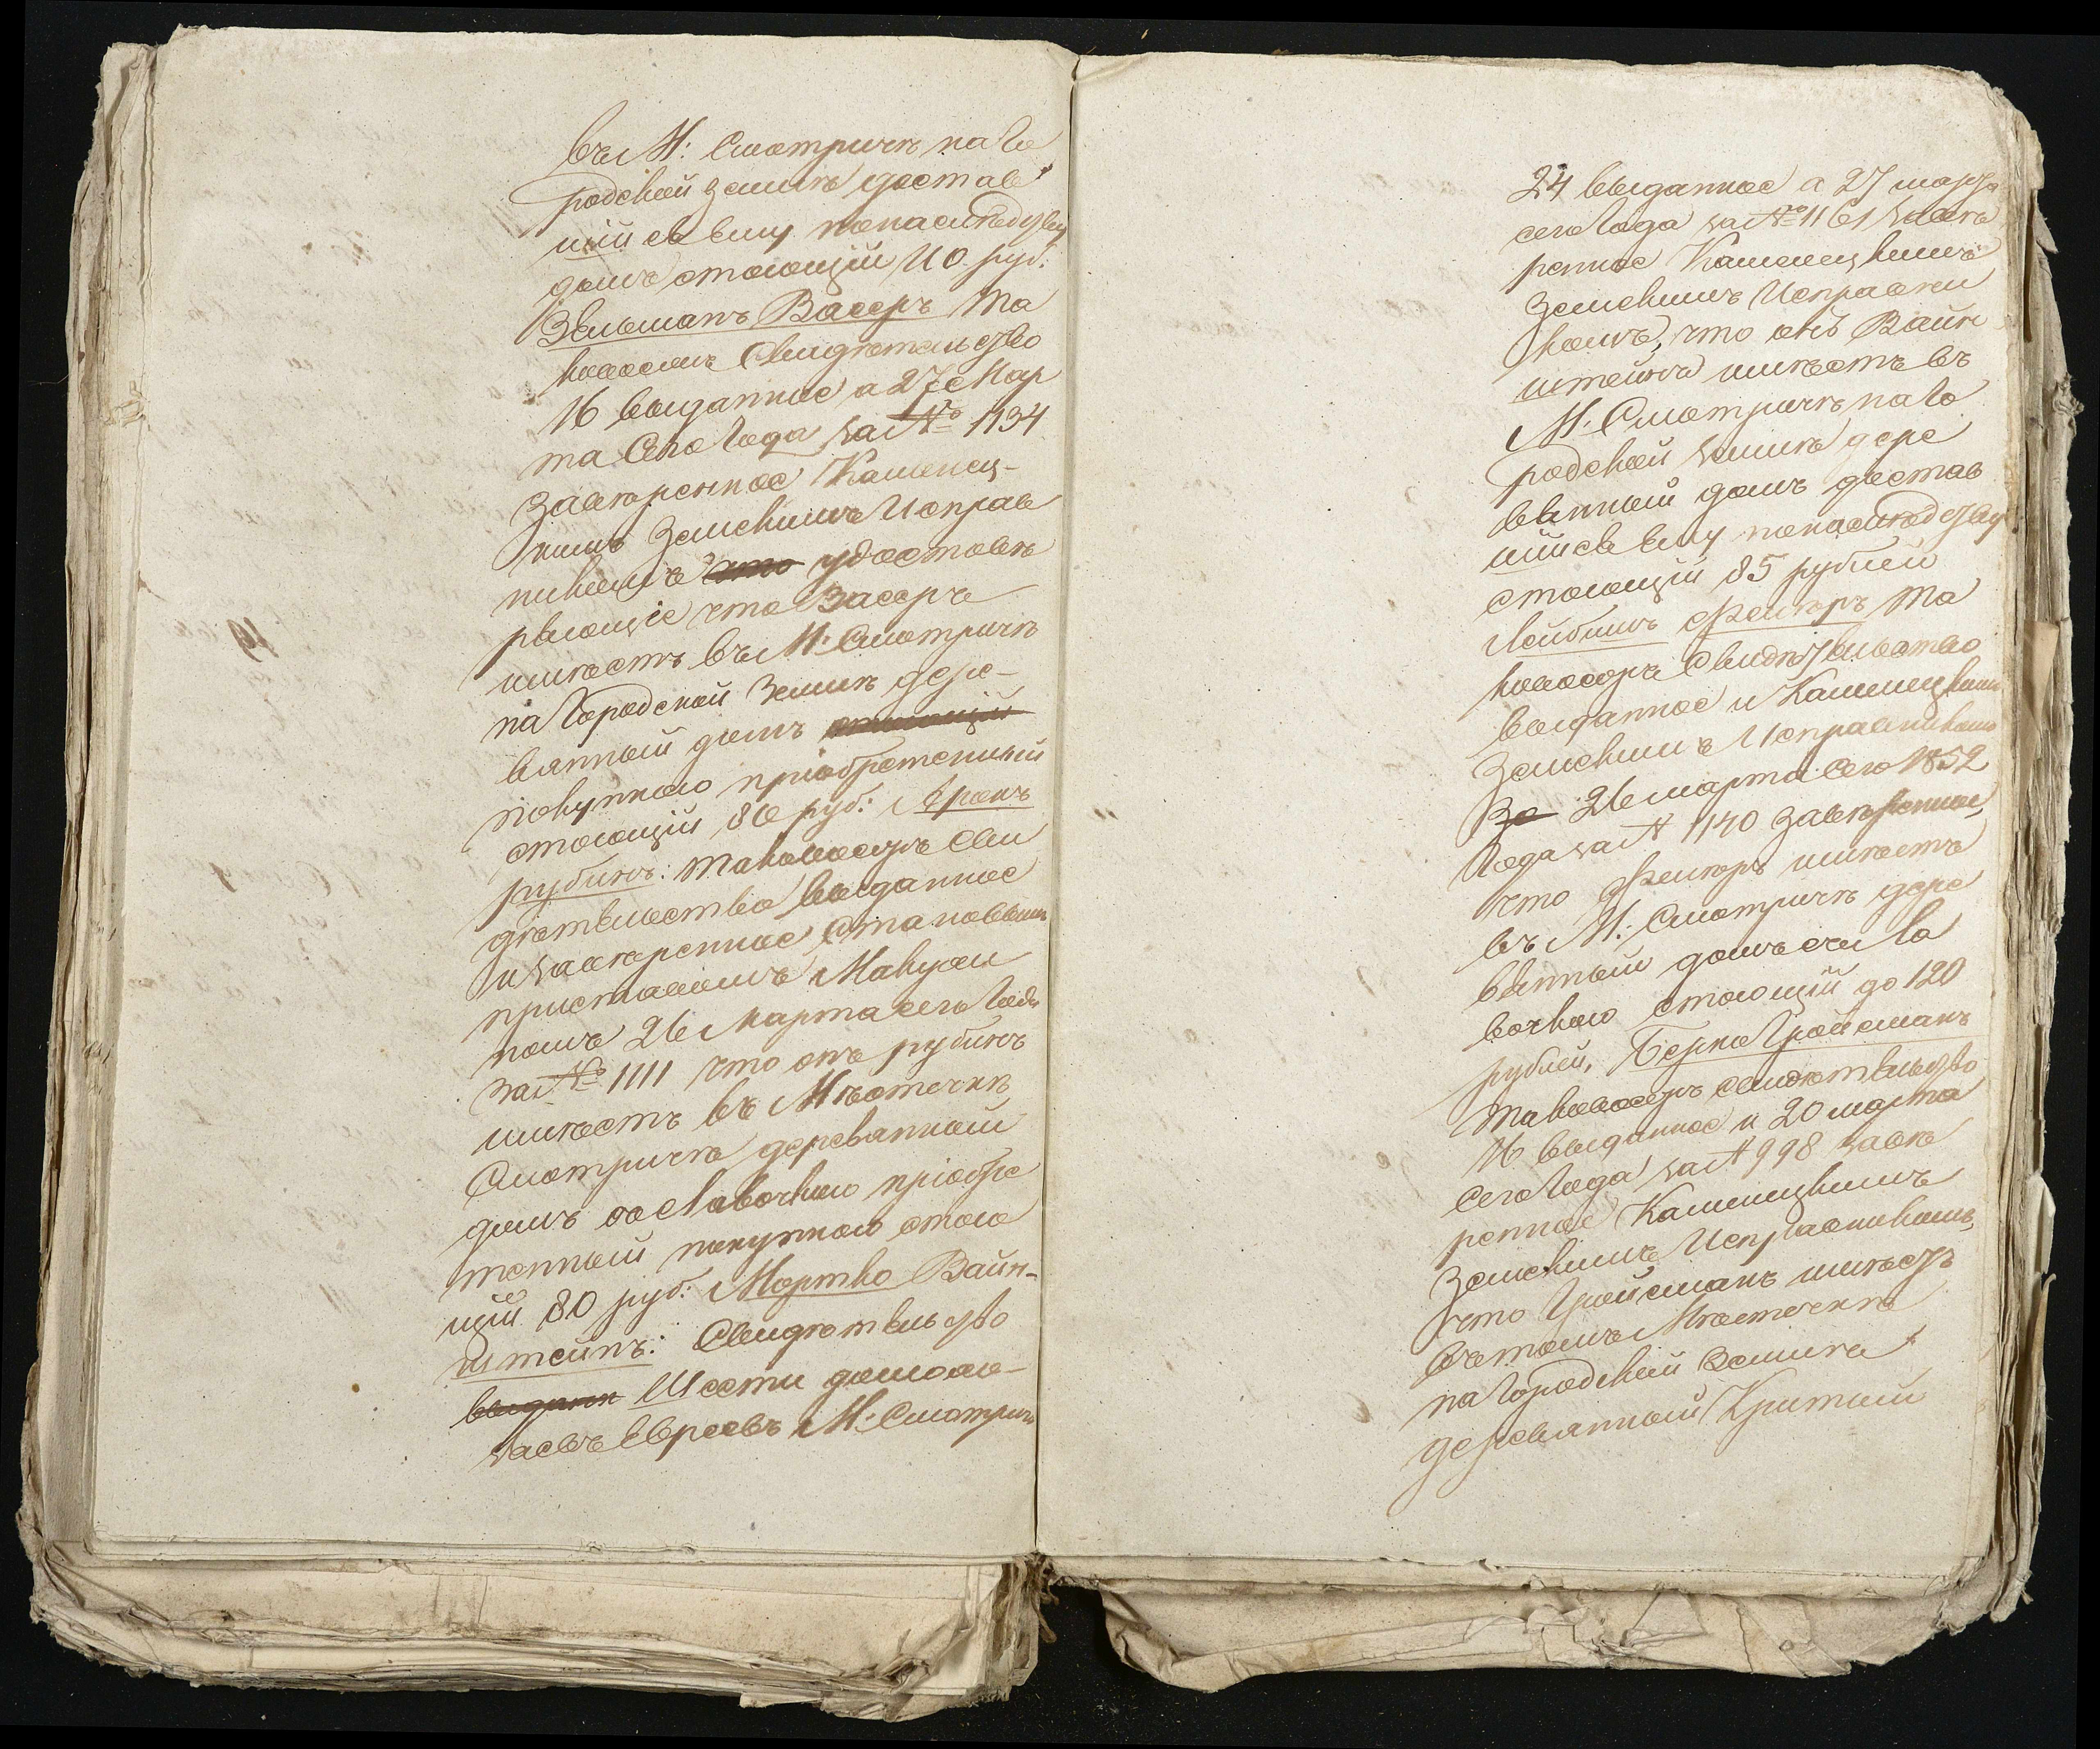 въ М: Смотричѣ на Го
родской землѣ достав
шійся ему понаслѣдству
домъ стоющій 110 руб:
Зельманъ Васеръ Та
ковоежъ Свидѣтельство
16 выданное а 27 Мар
та Сего Года за № 1134
Завѣренное Каменец-
кимъ Земскимъ Исправ
никомъ что удостовѣ
ряющіе что Васеръ
имѣетъ въ М: Смотричѣ
на Городской Землѣ дере-
вянный домъ стоющій
покупкою пріобретенный
стоющій 80 руб: Аронъ
рубинъ: Таковоежъ Сви
дѣтельство выданное
и завѣренное Становымъ
приставомъ
26 Марта сего Года
за № 1111 что онъ рубинъ
имѣетъ въ Мѣстечкѣ
Смотричѣ деревянный
домъ со славочкою пріобре
тенный покупкою стою
щій 80 руб: Мортко Вайн-
штейнъ: Свидѣтельство
выданн Шести домохо-
заевъ Евреевъ М: Смотрича
24 выданное а 27 марта
сего Года за № 1161 завѣ
ренное Каменецкимъ
Земскимъ Исправни
комъ, что онъ Вайн
штейнъ имѣетъ въ
М. Смотричѣ на Го
родской землѣ дере
вянный домъ достав
шійся ему понаслѣдству
стоющій 85 рублей
Лейбишъ Фелиеръ Та
ковоежъ Свидѣтельство
выданное и Каменецкимъ
Земскимъ Исправникомъ
За 26 марта сего 1852
Года за № 1140 Завѣренное,
что имѣетъ
въ М: Смотричѣ дере
вянный домъ съ ла
вочкою стоющій до 120
рублей, Берко Гройсманъ
Таковоежъ свидѣтельство
16 выданное и 20 марта
Сего Года за № 998 завѣ
ренное Каменецкимъ
Земскимъ Исправникомъ,
что Гройсманъ имѣетъ
вътомъ Мѣстечкѣ
на Городской Землѣ
деревянный Критый